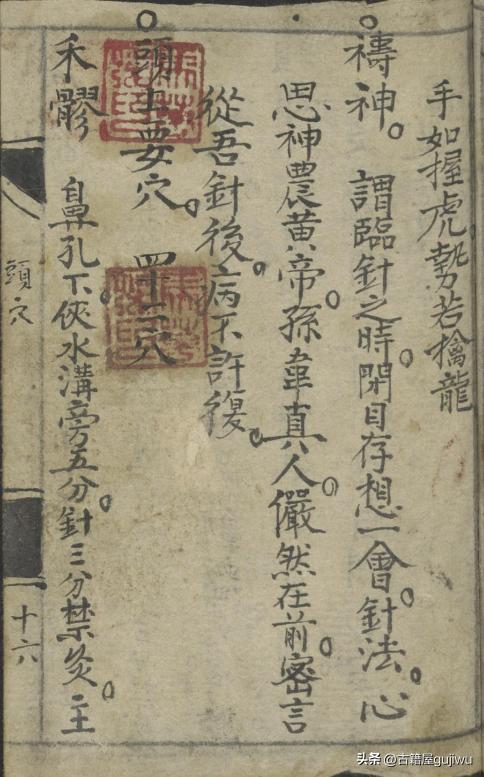 手如握虎。勢若擒龍
○禱神。 謂臨針之時。閉目存想一會。針法。心
思神農黃帝。孫韋真人。儼然在前。密言
從吾針後。病不許復。
○頭上要穴。 四十二穴
禾髎 鼻孔下。俠水溝旁五分。針三分。禁灸。主
頭穴
十六
头条 @古籍屋gujiwu